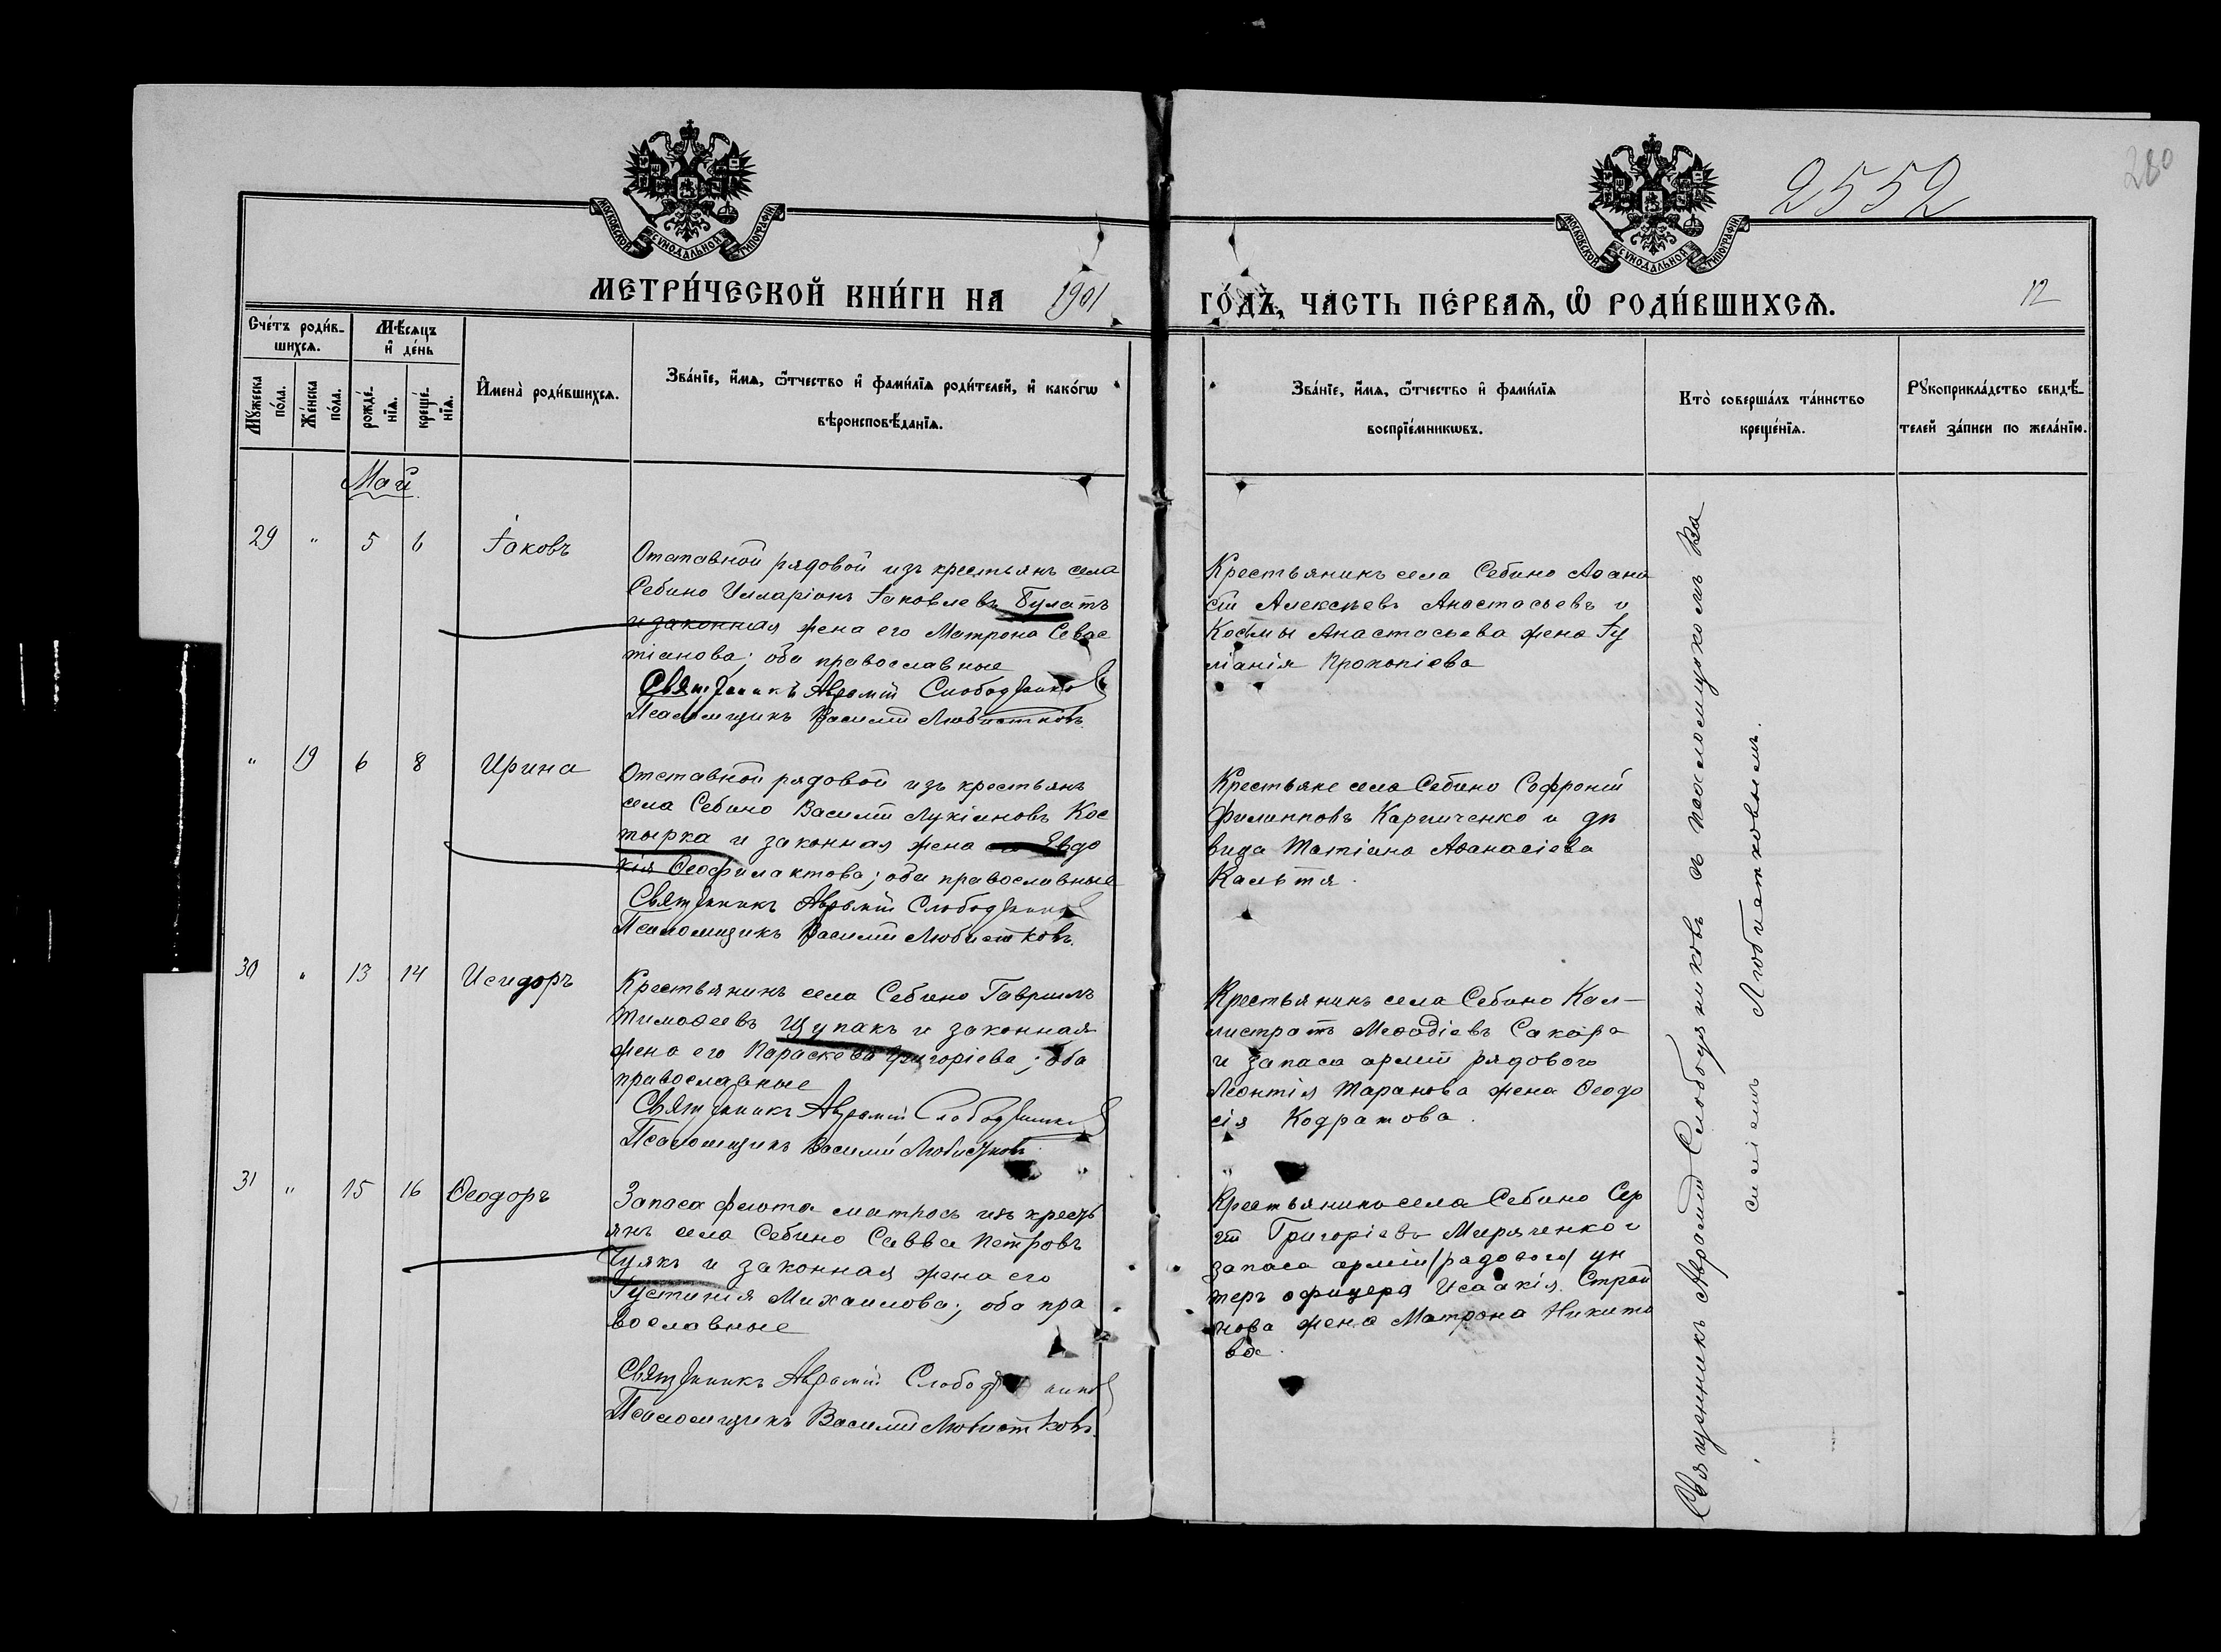 2552
280
МОСКОВСКОЙ СѴНОДАЛЬНОЙ ТИПОГРАФІИ
МОСКОВСКОЙ СѴНОДАЛЬНОЙ ТИПОГРАФІИ
МЕТРИ́ЧЕСКОЙ КНИ́ГИ НА 1901 ГО́ДЪ, ЧА́СТЬ ПЕ́РВАѦ, Ѿ РОДИ́ВШИХСѦ.
12
Сче́тъ роди́в-
шихсѧ.
Мꙋ́жеска
по́ла.
Же́нска
по́ла.
Мѣ́сѧцъ
и҆ де́нь
рожде́-
нїѧ.
креще́-
нїѧ.
И҆мена̀ роди́вшихсѧ.
Зва́нїе, и҆́мѧ, ѻ҆́тчество и҆ фамі́лїѧ роди́телей, и҆ како́гѡ
вѣроисповѣ́данїѧ.
Зва́нїе, и҆́мѧ, ѻ҆́тчество и҆ фамі́лїѧ
воспрїе́мникѡвъ.
Кто̀ соверша́лъ та́инство
креще́нїѧ.
Рꙋкоприкла́дство свидѣ́-
телей за́писи по жела́нїю.
Май
29 " 5 6 Іаковъ
Отставной рядовой изъ крестьянъ села
Себино Илларіонъ Іаковлевъ Булатъ
и законная жена его Матрона Севас
тіанова; оба православные
Священникъ Аврамій Слободянико
Псаломщикъ Василій Любистковъ.
Крестьянинъ села Себино Аѳана
сій Алексѣевъ Анастасьевъ и
Космы Анастасьева жена Іу
ліанія Прокопіева
" 19 6 8 Ирина
Отставной рядовой изъ крестьянъ
села Себино Василій Лукіановъ Кос
тырка и законная жена его Евдо
кія Ѳеофилактова; оба православные
Священникъ Аврамій Слободянико
Псаломщикъ Василій Любистковъ.
Крестьяне села Себино Софроній
Филипповъ Карпиченко и дѣ
вица Татіана Аѳанасіева
30 " 13 14 Исидоръ
Крестьянинъ села Себино Гавріилъ
Тимоѳеевъ Щупакъ и законная
жена его Параскева Григоріева; оба
православные
Священникъ Аврамій Слободянико
Псаломщикъ Василій Любистковъ
Крестьянинъ села Себино Кал-
листратъ Меѳодіевъ Сакара
и запаса арміи рядового
Леонтія Таранова жена Ѳеодо
сія Кодратова.
31 " 15 16 Ѳеодоръ
Запаса флота матросъ изъ кресть
янъ села Себино Савва Петровъ
Чуякъ и законная жена его
Іустинія Михаилова; оба пра
вославные
Священникъ Аврамій Слободянико
Псаломщикъ Василій Любистковъ.
Крестьянинъ села Себино Сер
гій Григоріевъ Миряченко и
запаса арміи /рядового/ ун
теръ офицера Исаакія Строй
нова жена Матрона Никито
ва.
Священникъ Аврамій Слободяниковъ съ псаломщикомъ Ва
силіемъ Любистковымъ.